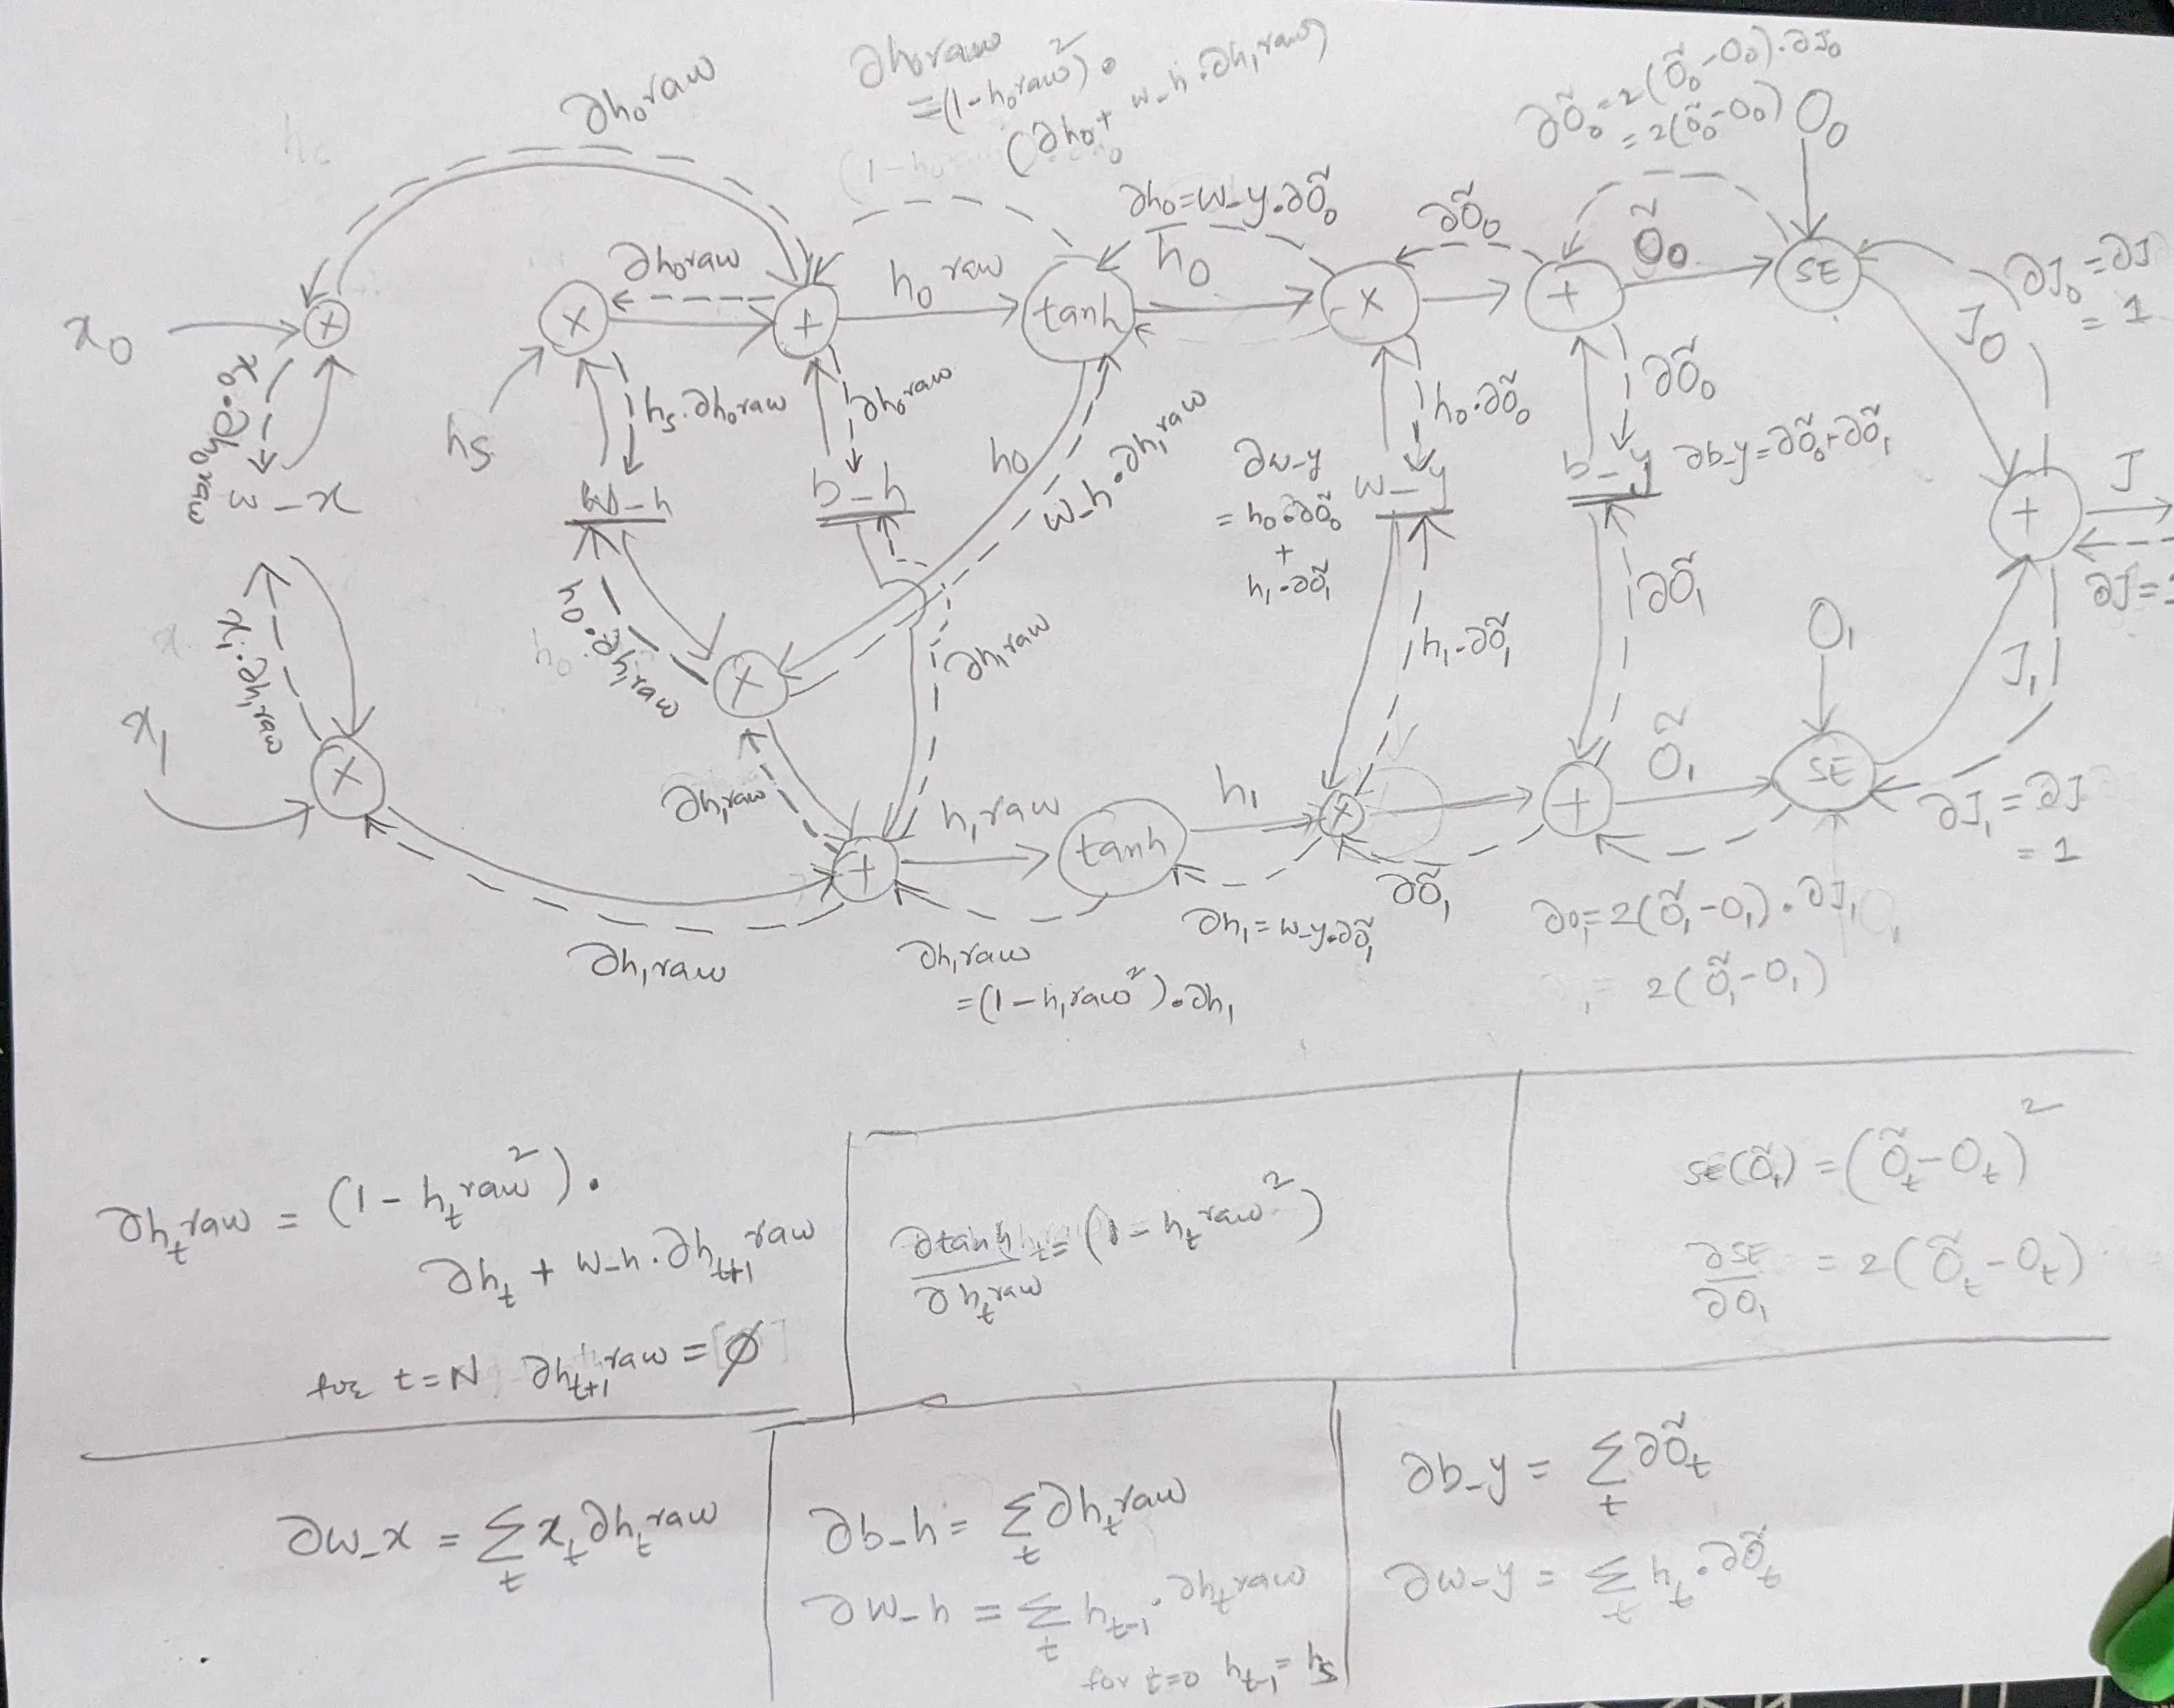 ∂h₀raw
∂h₀raw
=(1-h₀raw²).
(∂h₀+ w_h.∂h₁raw)
∂Õ₀=2(Õ₀-O₀).∂J₀
=2(Õ₀-O₀)
O₀
∂h₀=w_y.∂Õ₀
∂Õ₀
Õ₀
∂h₀raw
h₀raw
h₀
∂J₀=∂J
=1
x₀
×
×
+
tanh
×
+
SE
J₀
x₀.∂h₀raw
hs
hs.∂h₀raw
∂h₀raw
h₀
w_h.∂h₁raw
h₀.∂Õ₀
∂Õ₀
w_x
w_h
b_h
∂w_y
=h₀.∂Õ₀
+
h₁.∂Õ₁
w_y
b_y
∂b_y=∂Õ₀+∂Õ₁
+
J
∂J=
x₁.∂h₁raw
h₀.∂h₁raw
∂h₁raw
h₁.∂Õ₁
∂Õ₁
O₁
J₁
x₁
×
×
∂h₁raw
+
h₁raw
tanh
h₁
×
+
Õ₁
SE
∂J₁=∂J
=1
∂h₁raw
∂h₁raw
=(1-h₁raw²).∂h₁
∂h₁=w_y.∂Õ₁
∂Õ₁
∂o₁=2(Õ₁-O₁).∂J₁
= 2(Õ₁-O₁)
∂hₜraw = (1-hₜraw²).
∂hₜ + w_h.∂hₜ₊₁raw
for t=N ∂hₜ₊₁raw=∅
∂tanhₜ/∂hₜraw=(1-hₜraw²)
SE(Õₜ)=(Õₜ-Oₜ)²
∂SE/∂O₁ = 2(Õₜ-Oₜ)
∂w_x = Σₜ xₜ∂hₜraw
∂b_h= Σₜ ∂hₜraw
∂w_h = Σₜ hₜ₋₁.∂hₜraw
for t=0 hₜ₋₁=hs
∂b_y = Σₜ ∂Õₜ
∂w_y = Σₜ hₜ.∂Õₜ